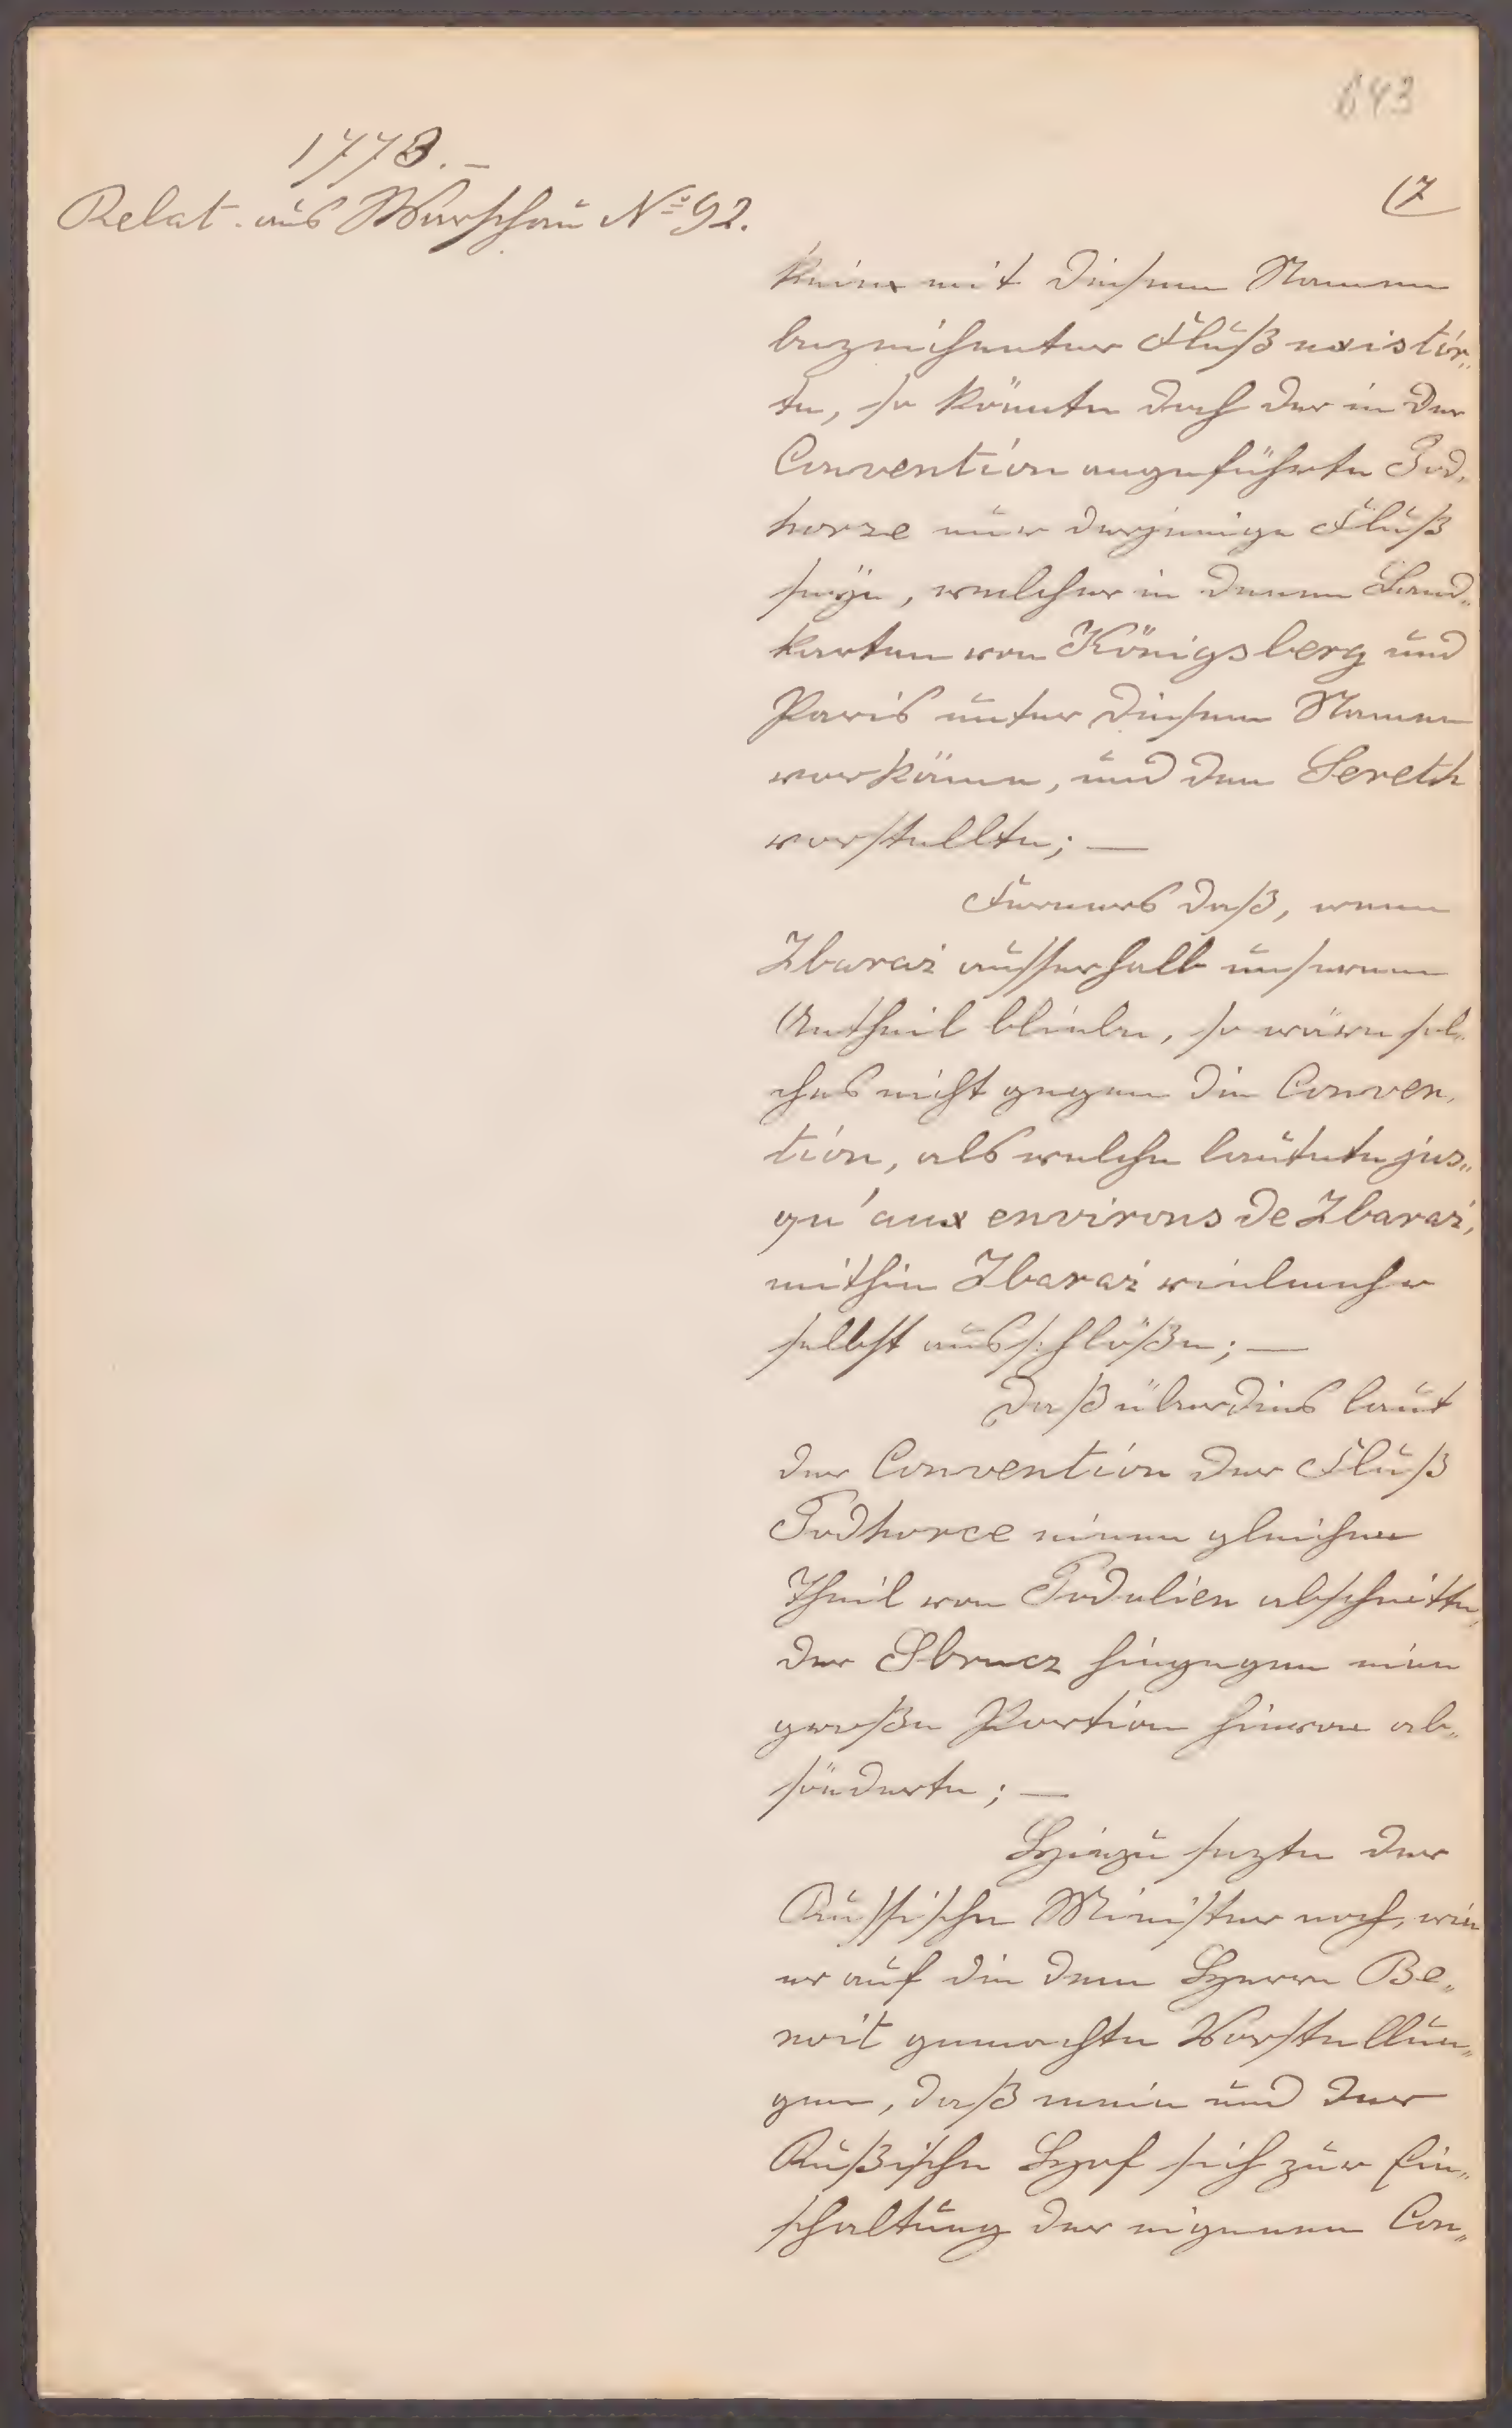 643
1773.–
Relat. aus Warschau No 92.
(7
keine mit diesem Namen
bezeichneter Fluß existir„
te, so könnte doch der in der
Convention angeführte Pod„
horze nur derjenige Fluß
seÿe, welcher in denen Land„
karten von Königsberg und
Paris unter diesem Namen
vorkäme, und den Sereth
vorstellte; —
Ferners daß, wenn
Zbaraz ausserhalb unserem
Antheil bliebe, so wäre sol„
ches nicht gegen die Conven„
tion, als welche lautete jus„
qu'aux environs de Zbaraz,
mithin Zbaraz vielmehr
selbst ausschlöße; —
Daß überdies laut
der Convention der Fluß
Podhorce einen gleichen
Theil von Podolien abschnitte,
der Sbrucz hingegen eine
große Portion hievon ab„
sönderte; —
Hiezu sezte der
Russische Minister noch, wie
er auf die dem Herrn Be„
noit gemachte Vorstellun„
gen, daß mein und der
Rußische Hof sich zur Ein„
schaltung der eigenen Con„